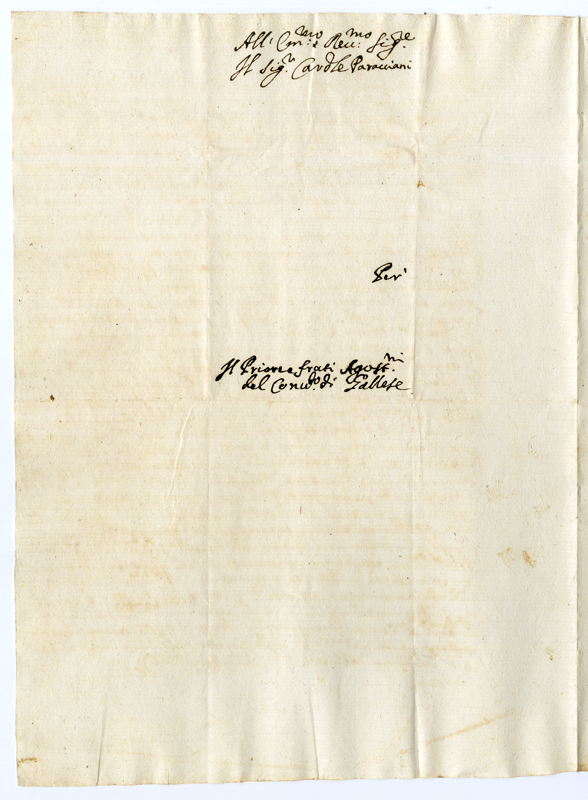 All' Em:mo e Reu:mo Sig:re
Il Sig:r Cardle Paracciani
Per
Il Priore e frati Agost:ni
del Conu:to di Gallese